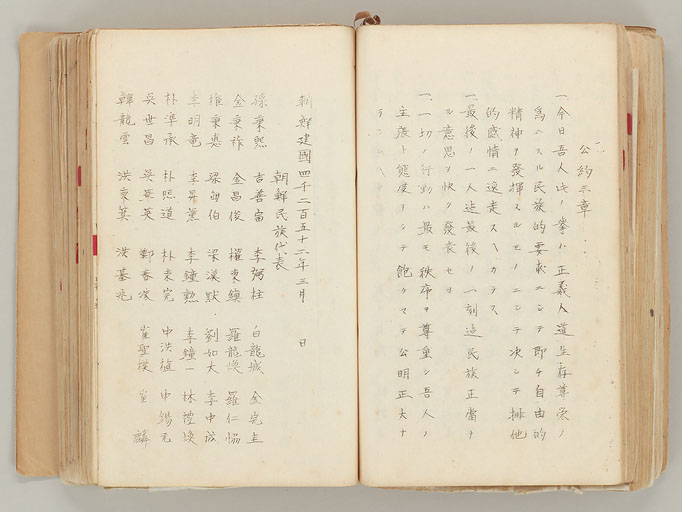 公約三章
一、今日吾人此ノ擧ハ正義人道生存尊榮ノ
爲ニスル民族的要求ニシテ即チ自由的
精神ヲ發揮スルモノニシテ決シテ排他
的感情ニ逸走スヘカラス
一、最後ノ一人迄最後ノ一刻迄民族正當ナ
ル意思ヲ快ク發表セヨ
一、一切ノ行動ハ最モ秩序ヲ尊重シ吾人ノ
主張ト態度ヲシテ飽クマテ公明正大ナ
朝鮮建國四千二百五十二年三月 日
朝鮮民族代表
孫秉熙 吉善宙 李弼柱 白龍城 金完圭
金秉祚 金昌俊 權東鎮 羅龍煥 羅仁協
權秉悳 梁甸伯 梁漢默 劉如大 李甲成
李明竜 李昇薫 李鐘勲 李鐘一 林禮煥
朴準承 朴熙道 朴東完 申洪植 申錫九
呉世昌 呉華英 鄭春洙 崔聖模 崔麟
韓龍雲 洪秉箕 洪基兆